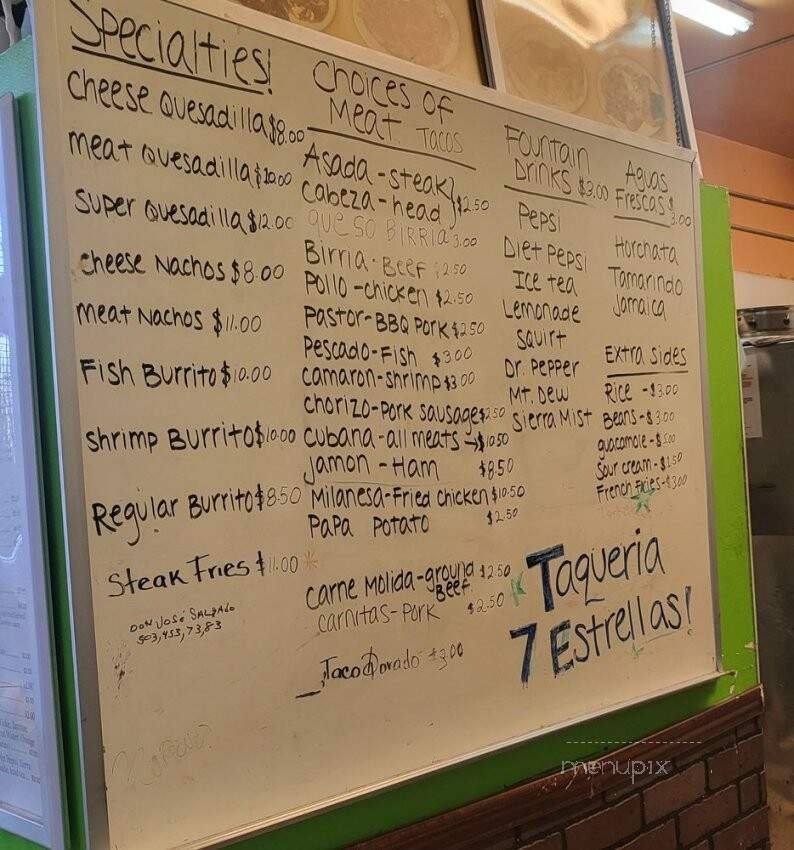 Specialties!
Cheese Quesadilla $8.00
meat Quesadilla $10.00
Super Quesadilla $12.00
cheese Nachos $8.00
meat Nachos $11.00
Fish Burrito $10.00
Shrimp Burrito $10.00
Regular Burrito $8.50
Steak Fries $11.00
DON JOSÉ SALGADO
503,453,7383
Choices of
Meat Tacos
Asada - steak
Cabeza - head } $2.50
queso BIRRIA 3.00
Birria - Beef 2.50
Pollo - chicken $2.50
Pastor - BBQ Pork $2.50
Pescado - Fish $3.00
camaron - shrimp $3.00
chorizo - pork sausage $2.50
cubana - all meats → $10.50
Jamon - Ham $8.50
Milanesa - Fried chicken $10.50
PaPa Potato $2.50
carne Molida - ground Beef $2.50
carnitas - Pork $2.50
Taco Dorado $3.00
Fountain
Drinks $3.00
Pepsi
Diet Pepsi
Ice tea
Lemonade
Squirt
Dr. Pepper
Mt. Dew
Sierra Mist
Aguas
Frescas $3.00
Horchata
Tamarindo
Jamaica
Extra sides
Rice - $3.00
Beans - $3.00
guacamole -
Sour cream - $1.50
French Fries - $3.00
Taqueria
7 Estrellas!
menupix